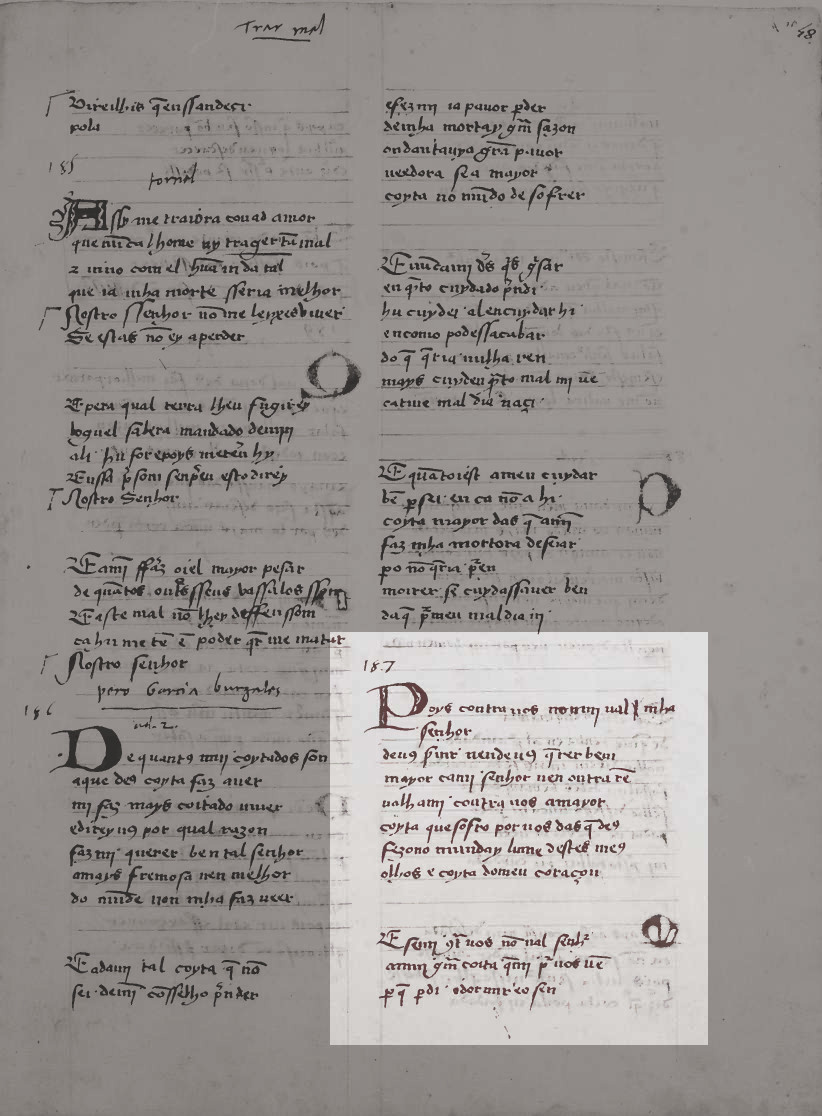 Trar mal
58
Vireilhis q̄ enssandeçi
pola
185
tornel
Assy me traiv̄ora couad amor
que nūcalhome uy trager tā mal
z uiuo com el hūa uida tal
que ia mha morte sseria melhor
Nostro ssenhor nōme leyxesviuer
Se estas nō ey a perder
E pera qual terra lheu fugirey
loguel sabera mandado demin
ali hu for epoys meteū hy
En ssa p̄som senp̄eu esto direy
Nostro Senhor
Eamj ffaz oiel mayor pesar
de quātos outs sseus vassalos ssom
E aste mal nō lhey deffenssom
ca hu me tē ē poder q̄r me matar
Nostro senhor
pero Garcia burgales
186
De quantꝯ mui coytados son
aque deꝯ coyta faz auer
mi faz mays coitado uiuer
edirey uꝯ por qual razon
fazmi querer ben tal senhor
amays fremosa nen melhor
do mūdo non mha faz ueer
Eadami tal coyta q̄ nō
sei demi cōsselho p̄nder
efezmi ia pauor p̄der
deinha mortay gm̄ sazon
ondantauya grā pauor
ueedora fea mayor
coyta no mūdo de sofrer
E nūcami ds q̄s g̓sar
en q̄to cuydado p̄ndi
hu cuydei alencuydarhi
encomo podessacabar
do q̄ q̄ria nulha ren
mays cuyden p̄to mal mi uē
catiue mal dia naçi
E quātoiest ameu cuydar
bē p̱ sei en ca nō a hi
coyta mayor das q̄ amī
faz mha mortora deseiar
pero nō q̄ria p̄en
morrer se cuydassauer ben
daq̄ p̄rmeu mal dia ui
187
Poys contra uos nonmi ual mha
senhor
deuꝯ s̓uir nendeuꝯ q̄rer ben
mayor camj senhor nen outra rē
ualhami contra uos amayor
coyta que sofro por uos das q̄ deꝯ
fezo no mūday lume destes meꝯ
olhos e coyta domeu coraçon
E semi 9t̄ uos nō ual senhr
amj gm̄ coita q̄mi p̄ uos uē
p̱ q̄ p̱di odormir eo sen